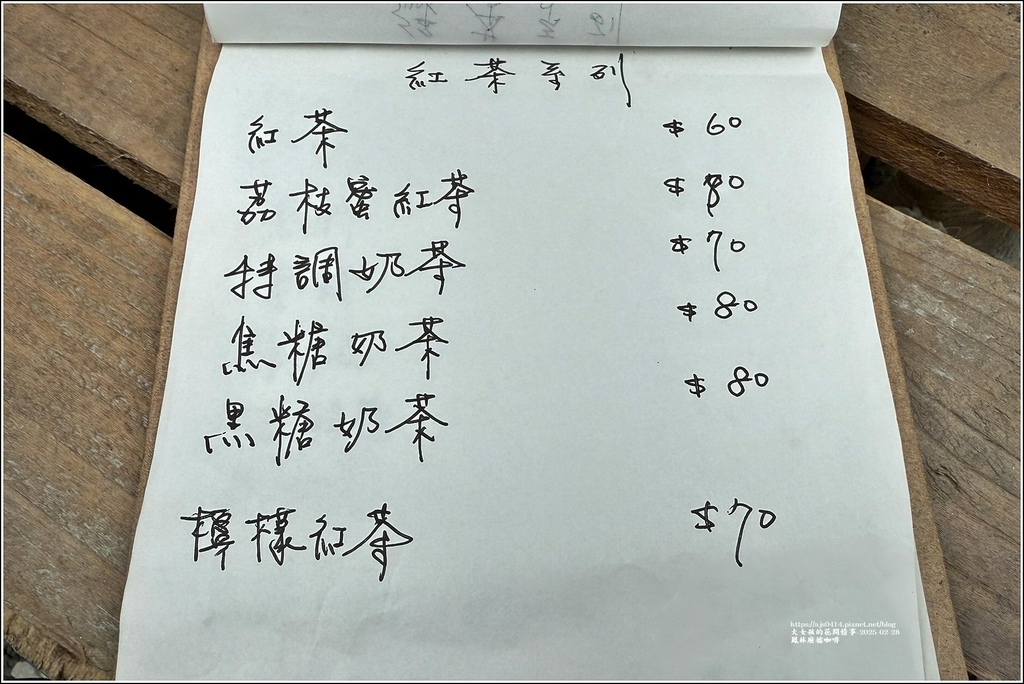 紅茶系列
紅茶 $60
荔枝蜜紅茶 $80
特調奶茶 $70
焦糖奶茶 $80
黑糖奶茶 $80
檸檬紅茶 $70
https://ajs0414.pixnet.net/blog
大女孩的花開情事 2025.02.28
鳳林廢墟咖啡